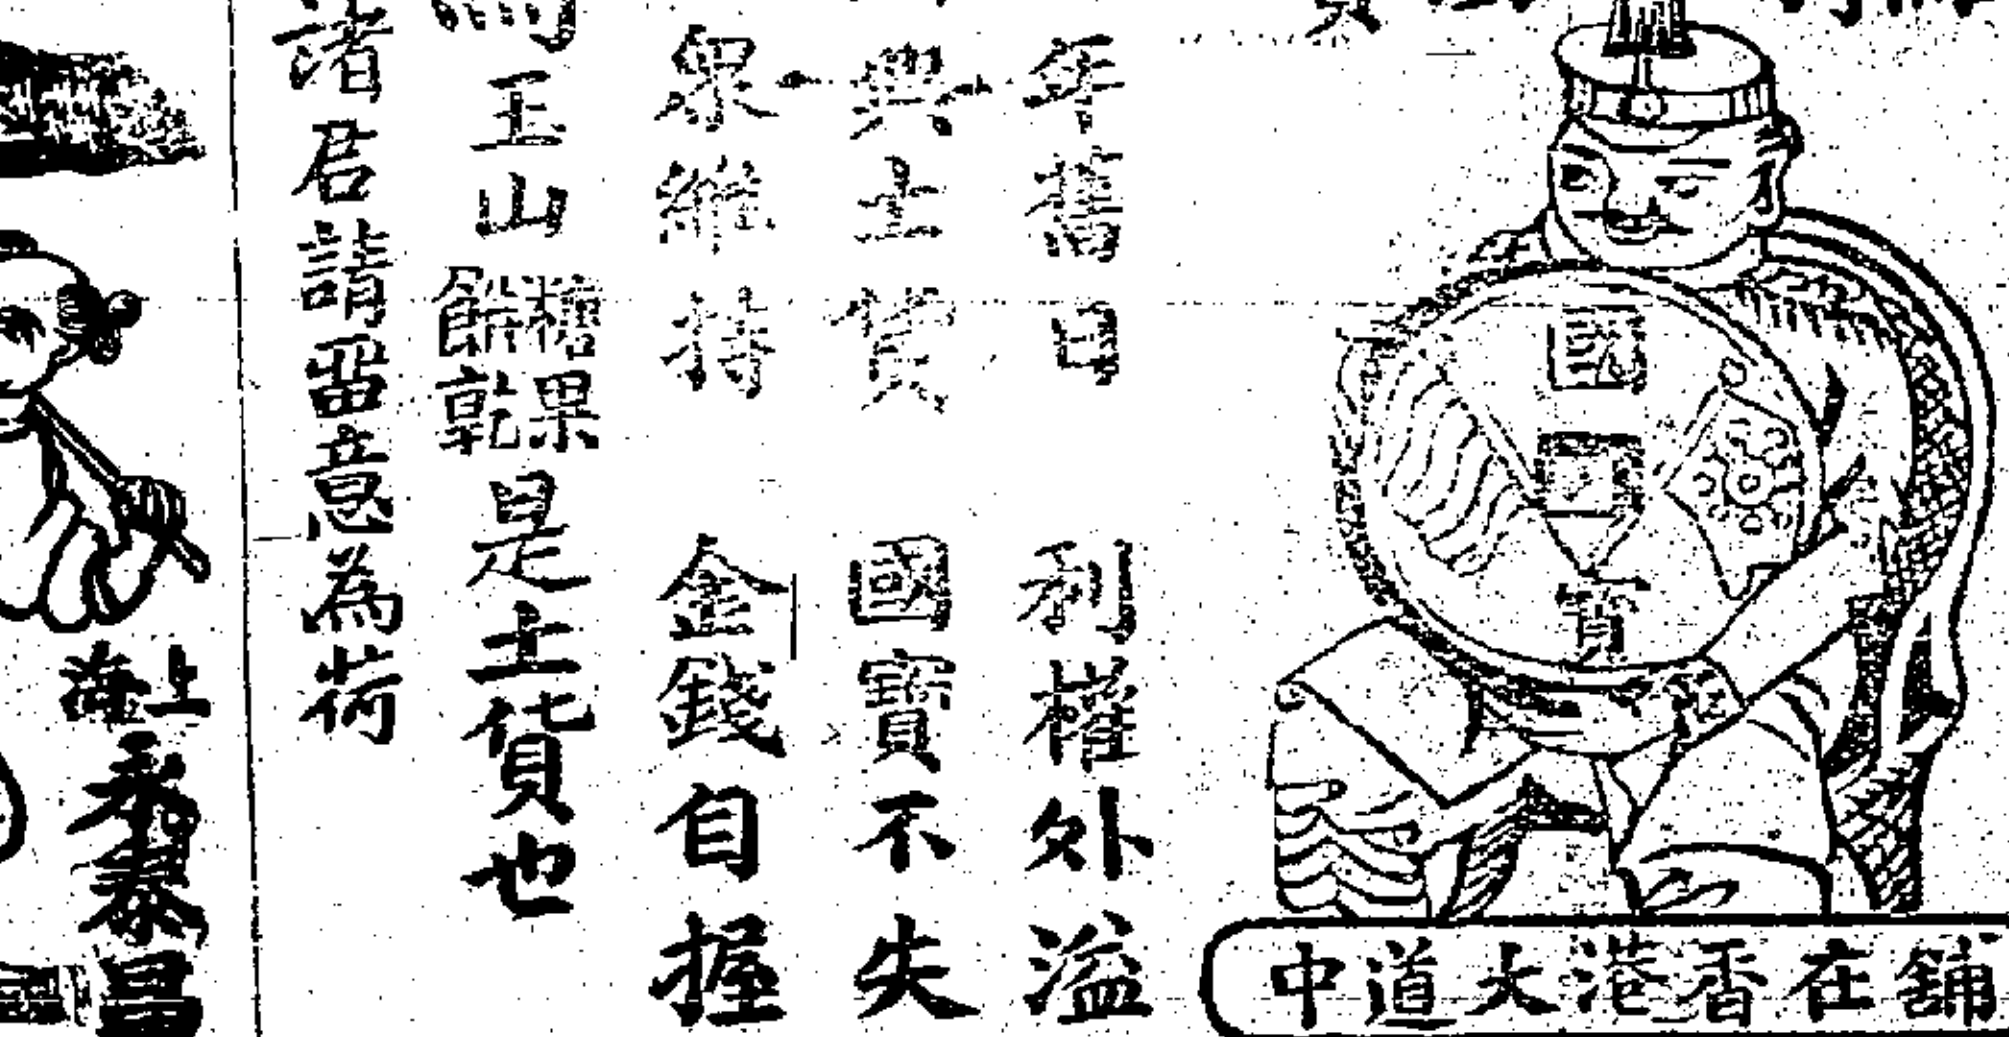 國
寶
舖在香港大道中
年舊日 利權外溢
興土貨 國寶不失
眾維持 金錢自握
馬玉山糖果餅乾是土貨也
諸君請畱意為荷
上海
永泰昌